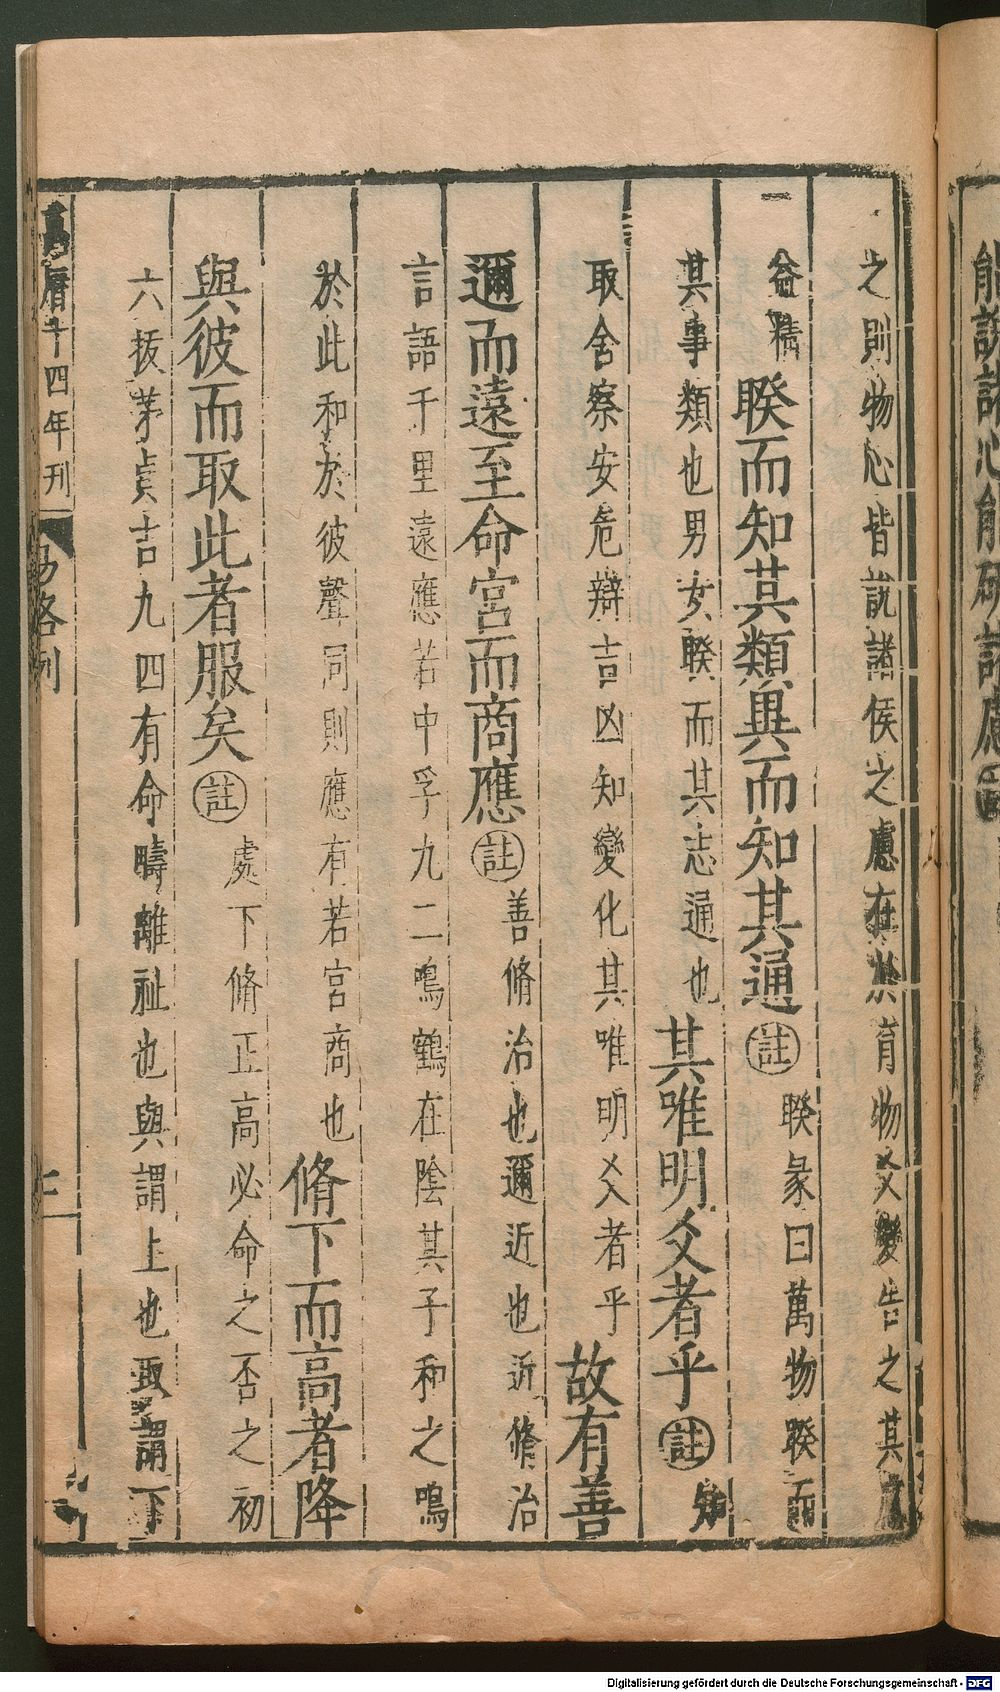 之則物心皆説諸侯之慮在於育物爻變告之其
益精睽而知其類異而知其通註睽彖曰萬物睽而
其事類也男女睽而其志通也其唯明爻者乎註知
取舍察安危辯吉凶知變化其唯明爻者乎故有善
邇而遠至命宮而商應註善脩治也邇近也近脩治
言語千里遠應若中孚九二鳴鶴在陰其子和之鳴
於此和於彼聲同則應有若宮商也脩下而高者降
與彼而取此者服矣註處下脩正高必命之否之初
六拔茅貞吉九四有命疇離祉也與謂上也取謂下
萬曆十四年刊
易略例
能說諸心能研諸慮註
Digitalisierung gefördert durch die Deutsche Forschungsgemeinschaft - DFG